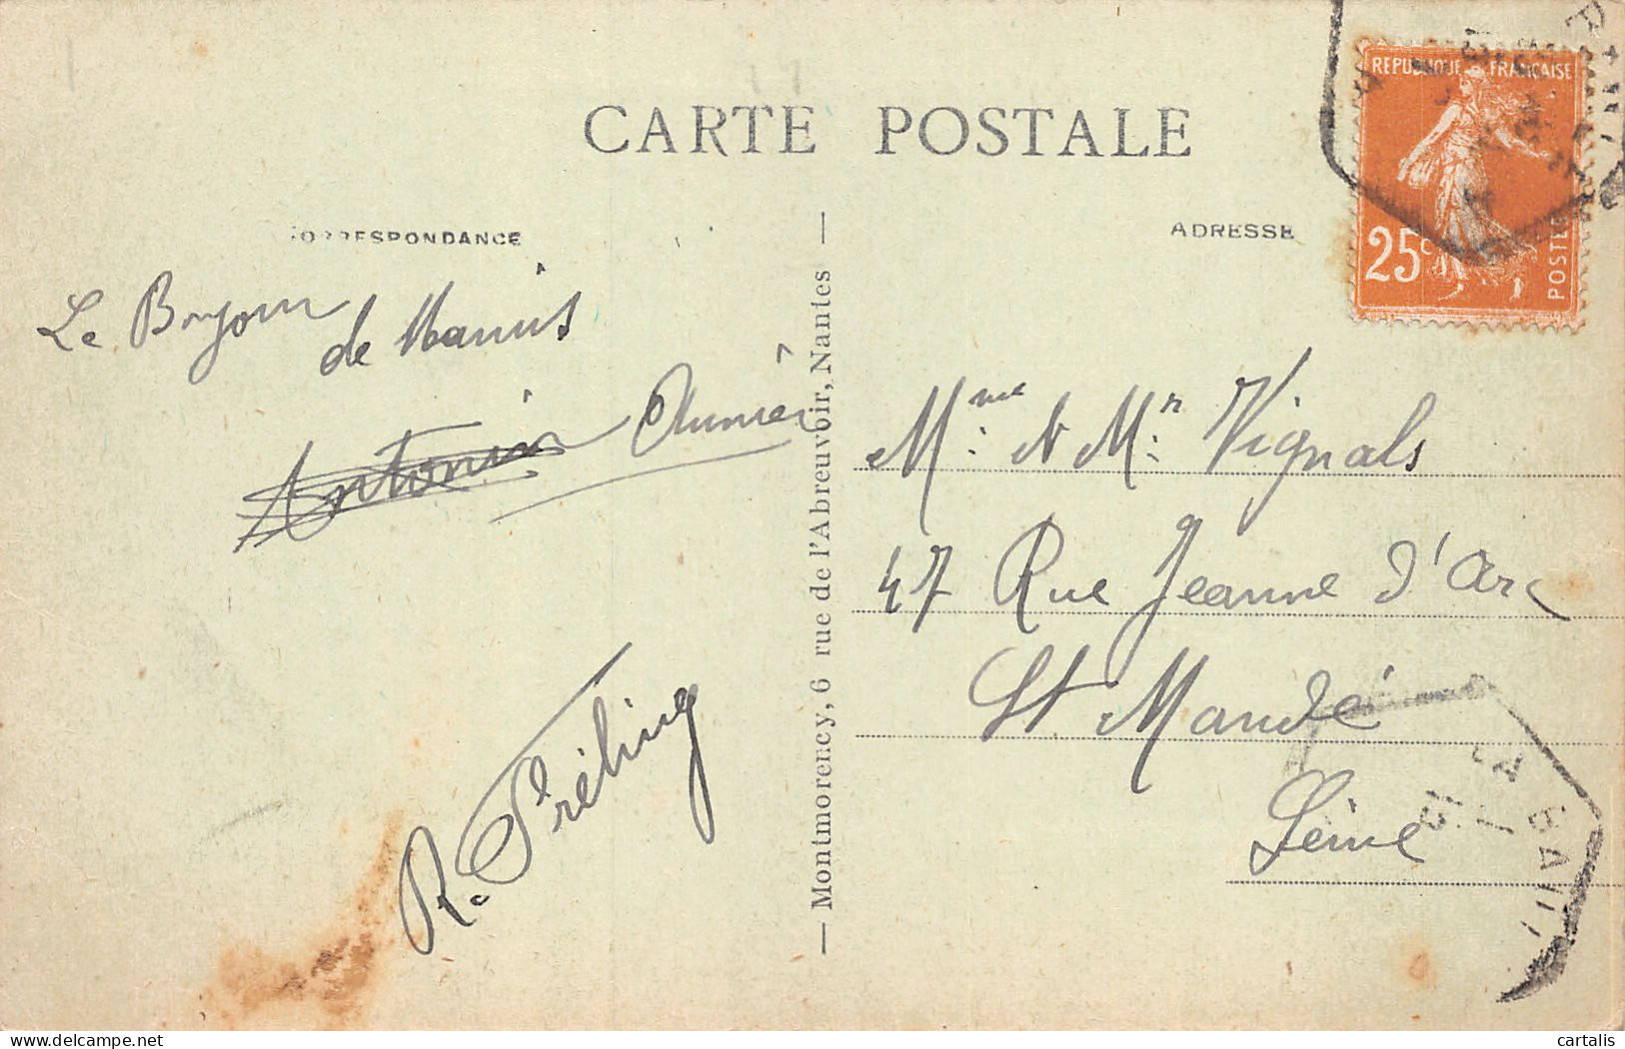 CARTE POSTALE
CORRESPONDANCE
ADRESSE
REPUBLIQUE FRANÇAISE
25c
POSTES
Le Bonjour
de Marius
Antonin
R. Fréling
— Montmorency, 6 rue de l'Abreuvoir, Nantes —
Mme et Mr Vignals
47 Rue Jeanne d'Arc
St Mandé
Seine
LA BAUL
cartalis
delcampe.net